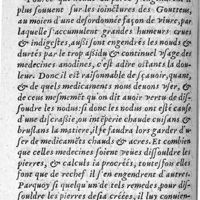 plus souuent sur les ioinctures des Goutteux,
au moien d'une desordonnée façon de viure, par
laquelle s'accumulent grandes humeurs crues
& indigestes, aussi sont engendrés les nouds &
durtés par le trop assidu & continuel vsage des
medecines anodines, c'est adire ostants la dou-
leur. Donc il est raisonnable de sçauoir, quant,
& de quels medicaments nous deuons vser, &
de ceux mesmes qu'on dit auoir vertu de diss-
oudre les nodus: si donc les nodus ont esté causés
d'une discrasie, ou intẽperie chaude cuisans &
bruslans la matiere, il se faudra lors garder d'u-
ser de medicamẽts chauds & acres. Et combien
que telles medecines soient veues dissoudre les
pierres, & calculs ia procreés, toutesfois elles
font que de rechef il s'en engendrent d'autres.
Parquoy si quelqu'un de tels remedes, pour diss-
oudre les pierres desia creées, il luy conuien-